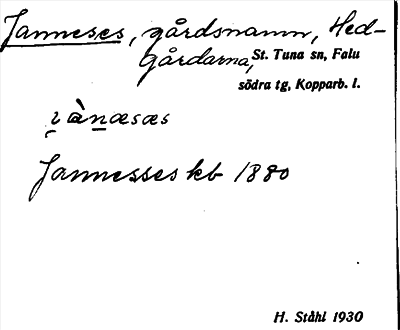 Janneses, gårdsnamn, Hed-
gårdarna, St. Tuna sn, Falu
södra tg, Kopparb. l.
Jannesses kb 1880
H. Ståhl 1930